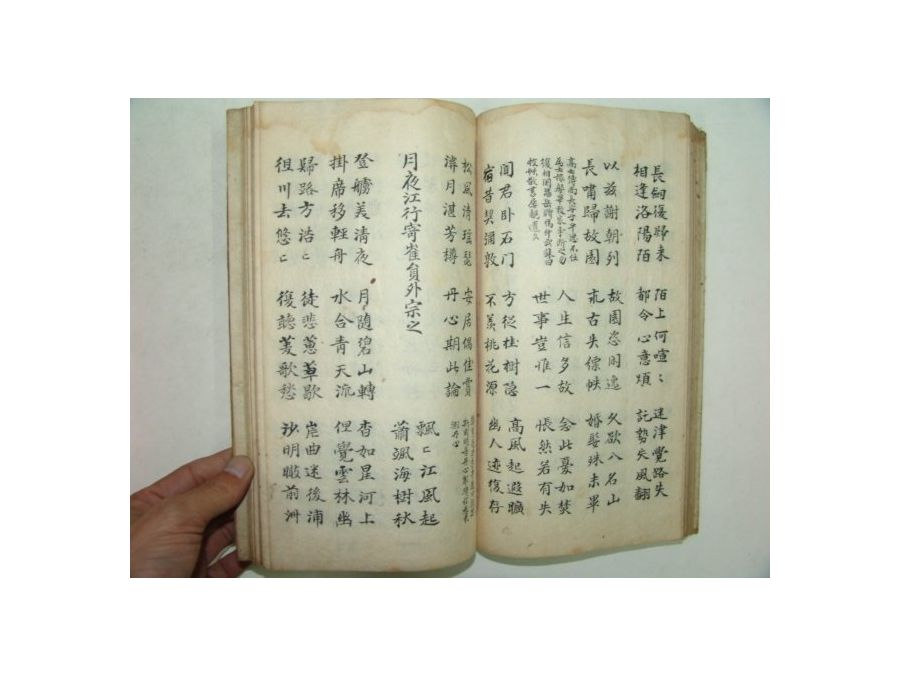 長劍復歸来
相逢洛陽陌
陌上何喧〻
都令心意煩
迷津覺路失
託勢失風翻
以玆謝朝列
長嘯歸故園
故園恣閒逸
古縹帙
久欲入名山
婚娶殊未畢
人生信多故
世事豈惟一
念此憂如焚
悵然若有失
聞君卧石门
宿昔契彌敦
方從桂樹隐
不羨桃花源
高風起遐曠
幽人迹復存
松風清瑶瑟
溪月湛芳樽
安居偶佳賞
丹心期此論
月夜江行寄崔貟外宗之
飄〻江風起
蕭颯海樹秋
登艫美清夜
掛席移輕舟
月隨碧山轉
水合青天流
杳如星河上
但覺雲林幽
歸路方浩〻
徂川去悠〻
徒悲蕙草歇
復聽菱歌愁
岸曲迷後浦
沙明瞰前洲